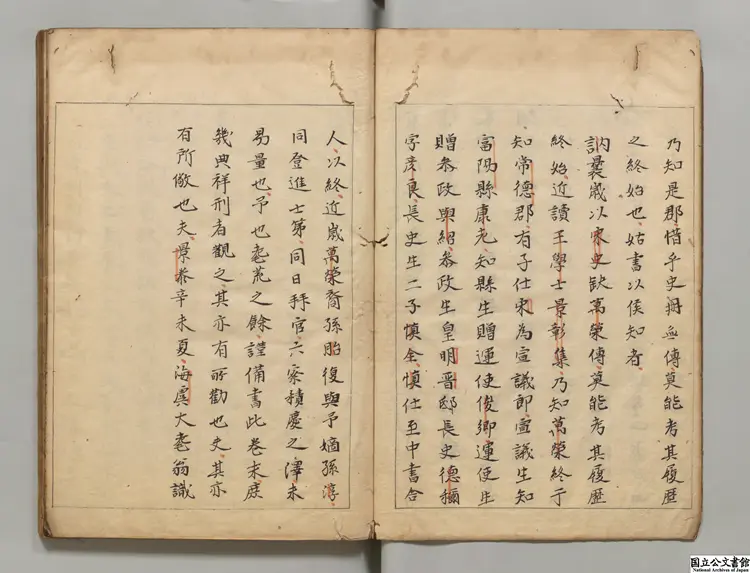 乃知是郡惜乎史冊無傳莫能考其履歷
之終始也姑書以俟知者
訥曩歲以宋史缺萬榮傳莫能考其履歷
終始近讀王學士景彰集乃知萬榮終于
知常德郡有子仕宋為宣議郎宣議生知
富陽縣康老知縣生贈運使俊卿運使生
贈叅政與紹叅政生皇明晋邸長史德稱
字彦良長史生二子慎全慎仕至中書舍
人以終近歲萬榮裔孫胎復與予嫡孫淳
同登進士第同日拜官六察積慶之澤未
易量也予也耄荒之餘謹備書此卷末庶
幾典祥刑者觀之其亦有所勸也夫其亦
有所儆也夫景泰辛未夏海虞大耄翁識
国立公文書館
National Archives of Japan